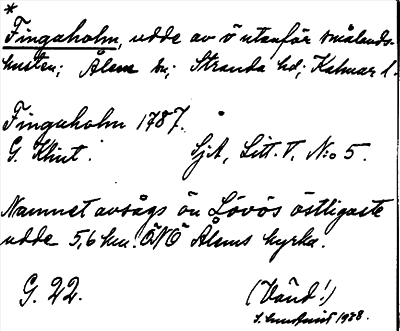 *
Fingaholm, udde av ö utanför smålands-
kusten; Ålem sn; Stranda hd; Kalmar l.
Fingaholm 1787.
G. Klint. SjA, Litt. T, N:o 5.
Namnet avsågs ön Lövös östligaste
udde 5,6 km. ÖNÖ Ålems kyrka.
G. 22. (Vänd!)
1928.